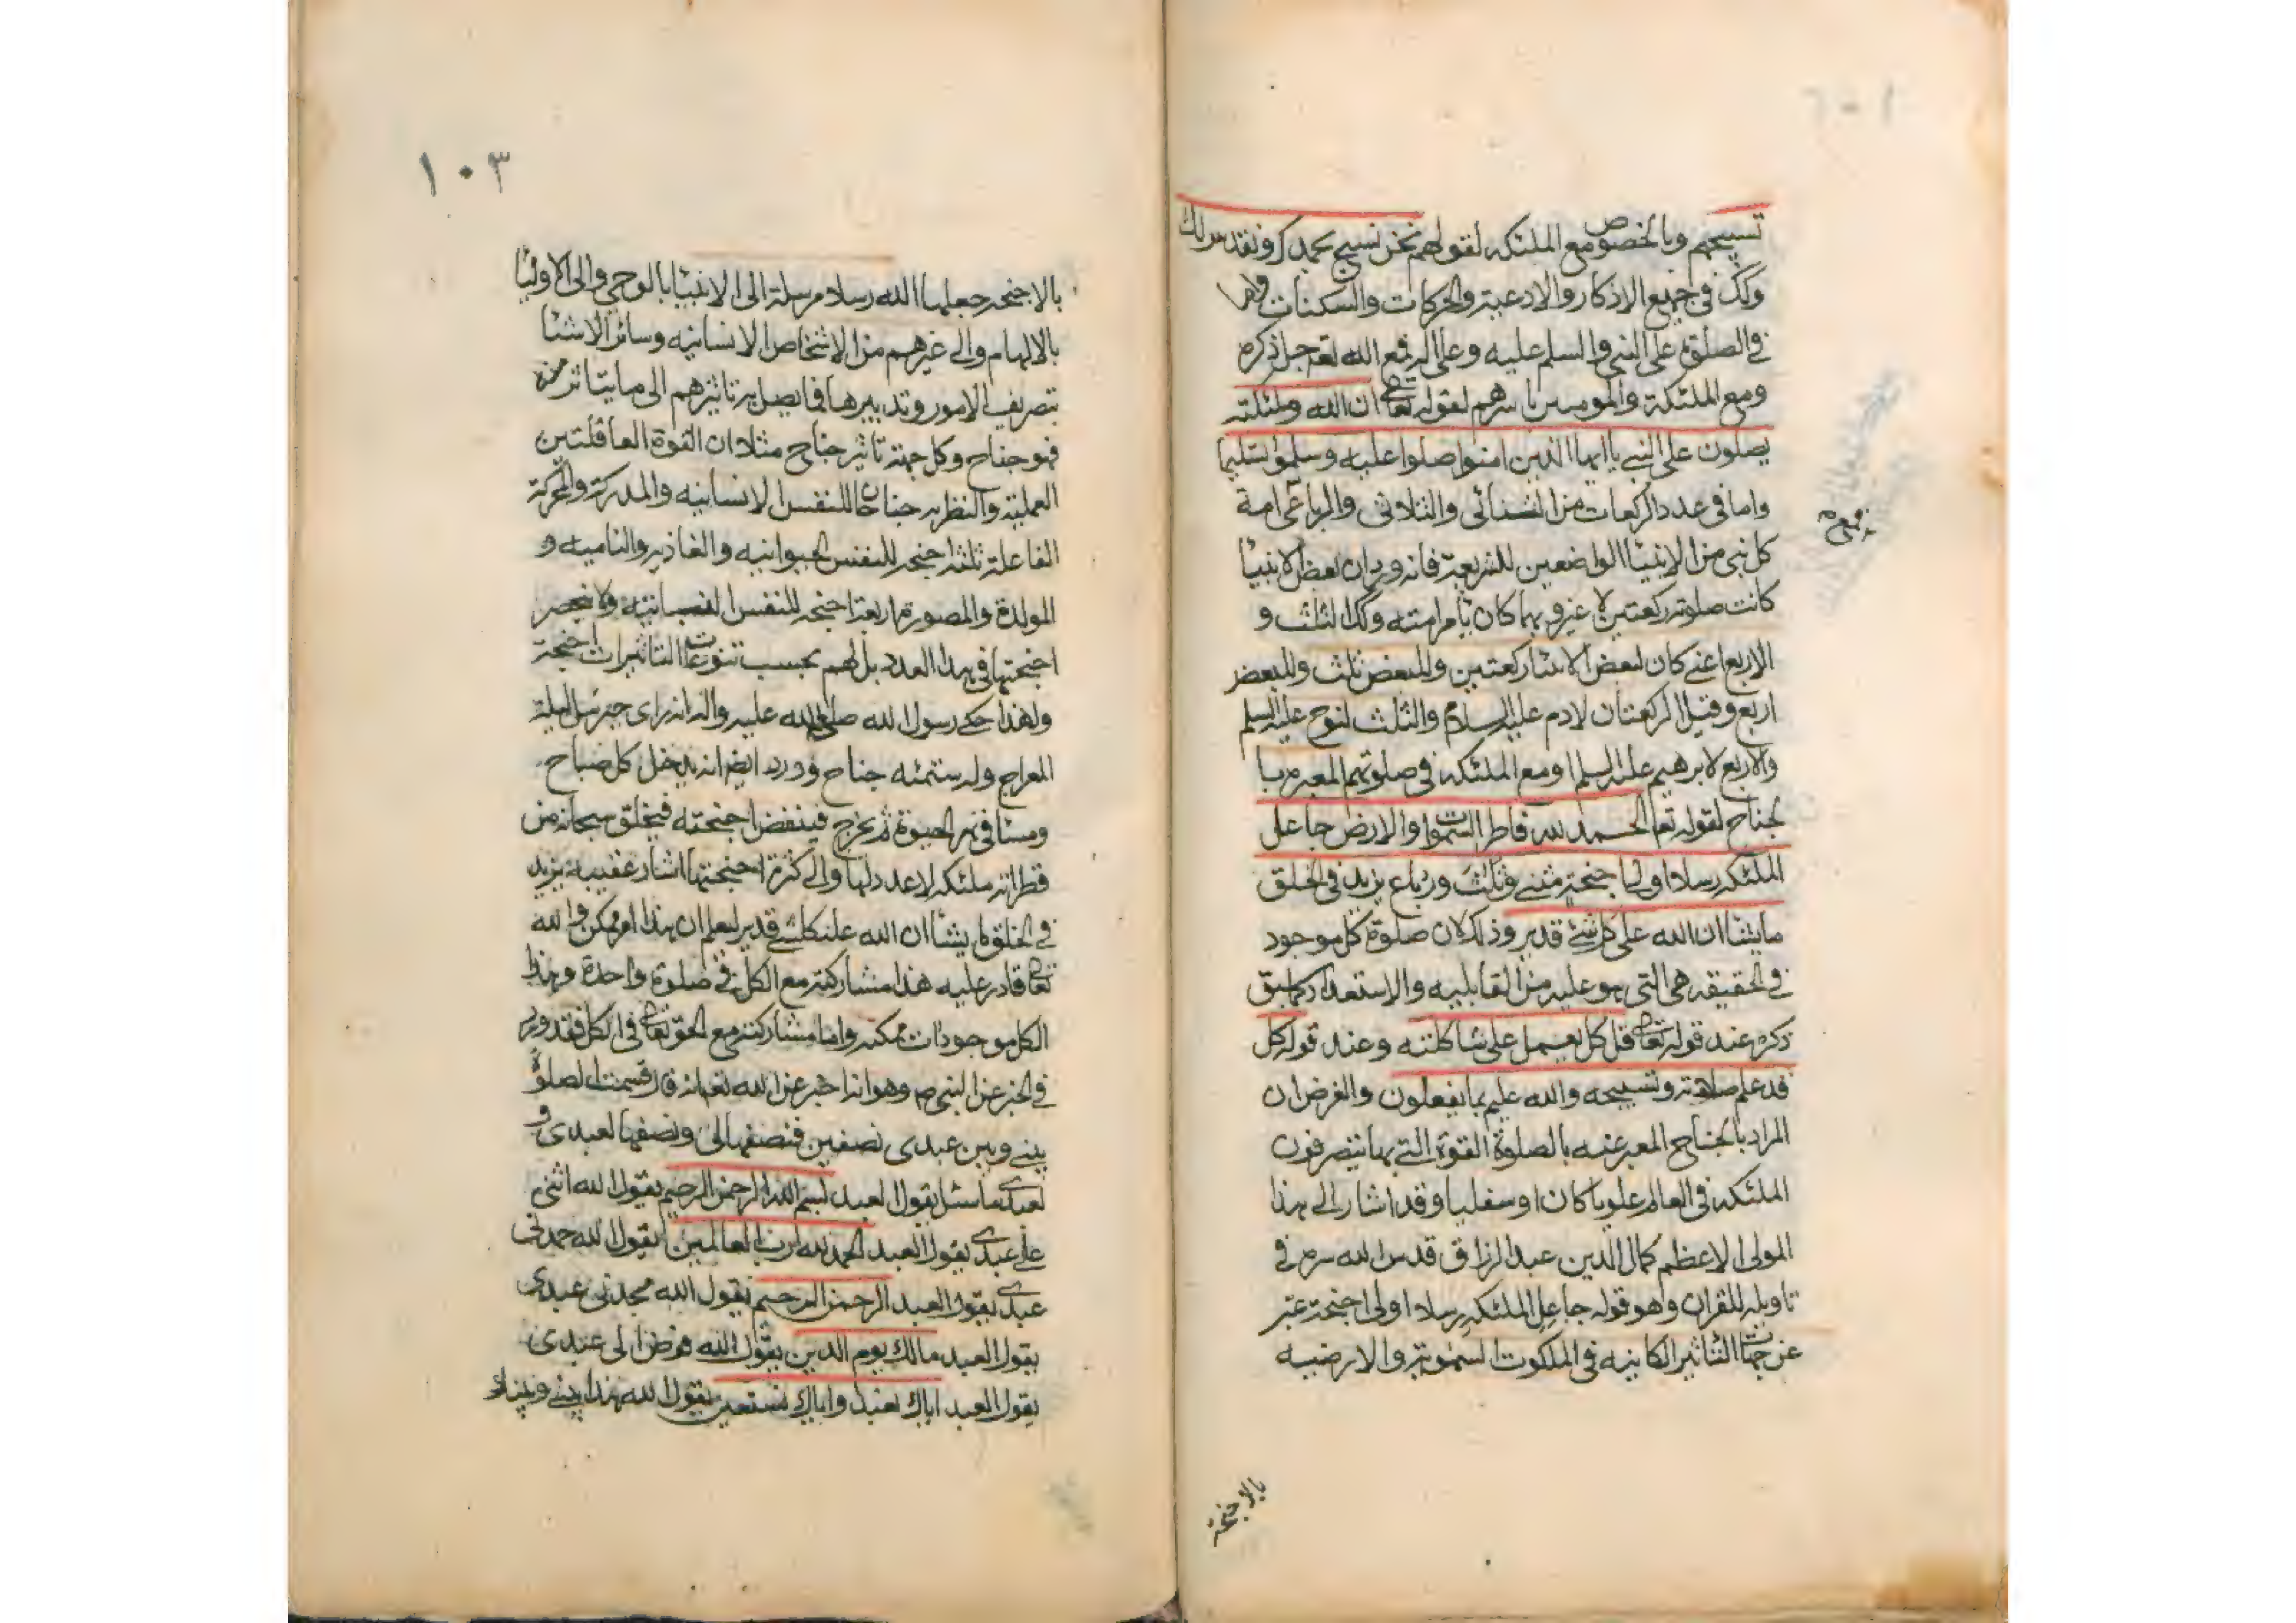 تسبيحهم وبالخصوص مع الملئكه لقولهم نحن نسبح بحمدك ونقدس لك
وكك في جميع الاذكار والادعية والحركات والسكنات
في الصلوة على النبي والسلم عليه وعلى اله فمع الله تعه جل ذكره
ومع الملئكة والمومنين باسرهم لقوله تعالى ان الله وملئكته
يصلون على النبي يا ايها الذين امنوا صلوا عليه وسلموا تسليما
واما في عدد الركعات من الثنائى والثلاثى والرباعى امة
فمع
كل نبى من الانبيا الواضعين للشريعة فانه ورد ان بعض الانبيا
كانت صلوته ركعتين لا غير وبها كان يامر امته وكذا الثلث و
الاربع اعنى كان لبعض الانبيا ركعتين وللبعض ثلث وللبعض
اربع وقيل الركعتان لادم عليه السلام والثلث لنوح عليه السلم
والاربع لابرهيم عليه السلم اومع الملئكه في صلوتهم المعبر با
لجناح لقوله تعا الحمد لله فاطر السموات والارض جاعل
الملئكه رسلا اولى اجنحة مثنى وثلث ورباع يزيد في الخلق
ما يشا ان الله على كل شئ قدير وذلك لان صلوة كل موجود
في الحقيقه هي التى هو عليه من القابليه والاستعداد كما سبق
ذكره عند قوله تعالى قل كل يعمل على شاكلته وعند قوله كل
قد علم صلاته وتسبيحه والله عليم بما يفعلون والغرض ان
المراد بالجناح المعبر عنه بالصلوة القوة التى بها يتصرفون
الملئكه في العالم علويا كان او سفليا وقد اشار الى هذا
المولى الاعظم كمال الدين عبد الرزاق قدس الله سره في
تاويله للقران وهو قوله جاعل الملئكه رسلا اولى اجنحة عبر
عن جهات التاثير الكاينه في الملكوت السموية والارضيه
بالاجنحة
١٠٣
بالاجنحه جعلها الله رسلا مرسلة الى الانبيا بالوحي والى الاوليا
بالالهام والى غيرهم من الاشخاص الانسانيه وساير الاشيا
بتصريف الامور وتدبيرها فما يصل به تاثيرهم الى ما يتاثر منه
فهو جناح وكل جهة تاثير جناح مثلا ان القوة العاقلتين
العملية والنظريه جناحان للنفس الانسانيه والمدركة والمحركة
الفاعلة ثلثة اجنحه للنفس الحيوانيه والغاذيه والناميه و
المولدة والمصورة اربعة اجنحه للنفس النباتيه ولا ينحصر
اجنحتها في هذا العدد بل لهم بحسب تنوعات التاثيرات اجنحة
ولهذا حكى رسول الله صلى الله عليه واله انه راى جبرئيل ليلة
المعراج وله ستمئه جناح وورد ايضا انه يدخل كل صباح
ومسا في نهر الحيوة ثم يخرج فينفض اجنحته فيخلق سبحانه من
قطراته ملئكه لا عدد لها والى كثرة اجنحتها اشار عقيبه يزيد
في الخلق ما يشا ان الله على كل شئ قدير ليعلم ان هذا امر ممكن والله
تعالى قادر عليه هذا مشاركته مع الكل في صلوة واحدة وهذا
الكل موجودات ممكنه واما مشاركته مع الحق تعالى في الكل فقد ورد
في الخبر عن النبى ص وهو انه اخبر عن الله تعه انه قال قسمت الصلوة
بينى وبين عبدى نصفين فنصفها لى ونصفها لعبدى و
لعبدى ما سئل يقول العبد بسم الله الرحمن الرحيم يقول الله اثنى
على عبدى يقول العبد الحمد لله رب العالمين يقول الله حمدنى
عبدى يقول العبد الرحمن الرحيم يقول الله مجدنى عبدى
يقول العبد مالك يوم الدين يقول الله فوض الى عبدى
يقول العبد اياك نعبد واياك نستعين يقول الله هذا بينى وبين